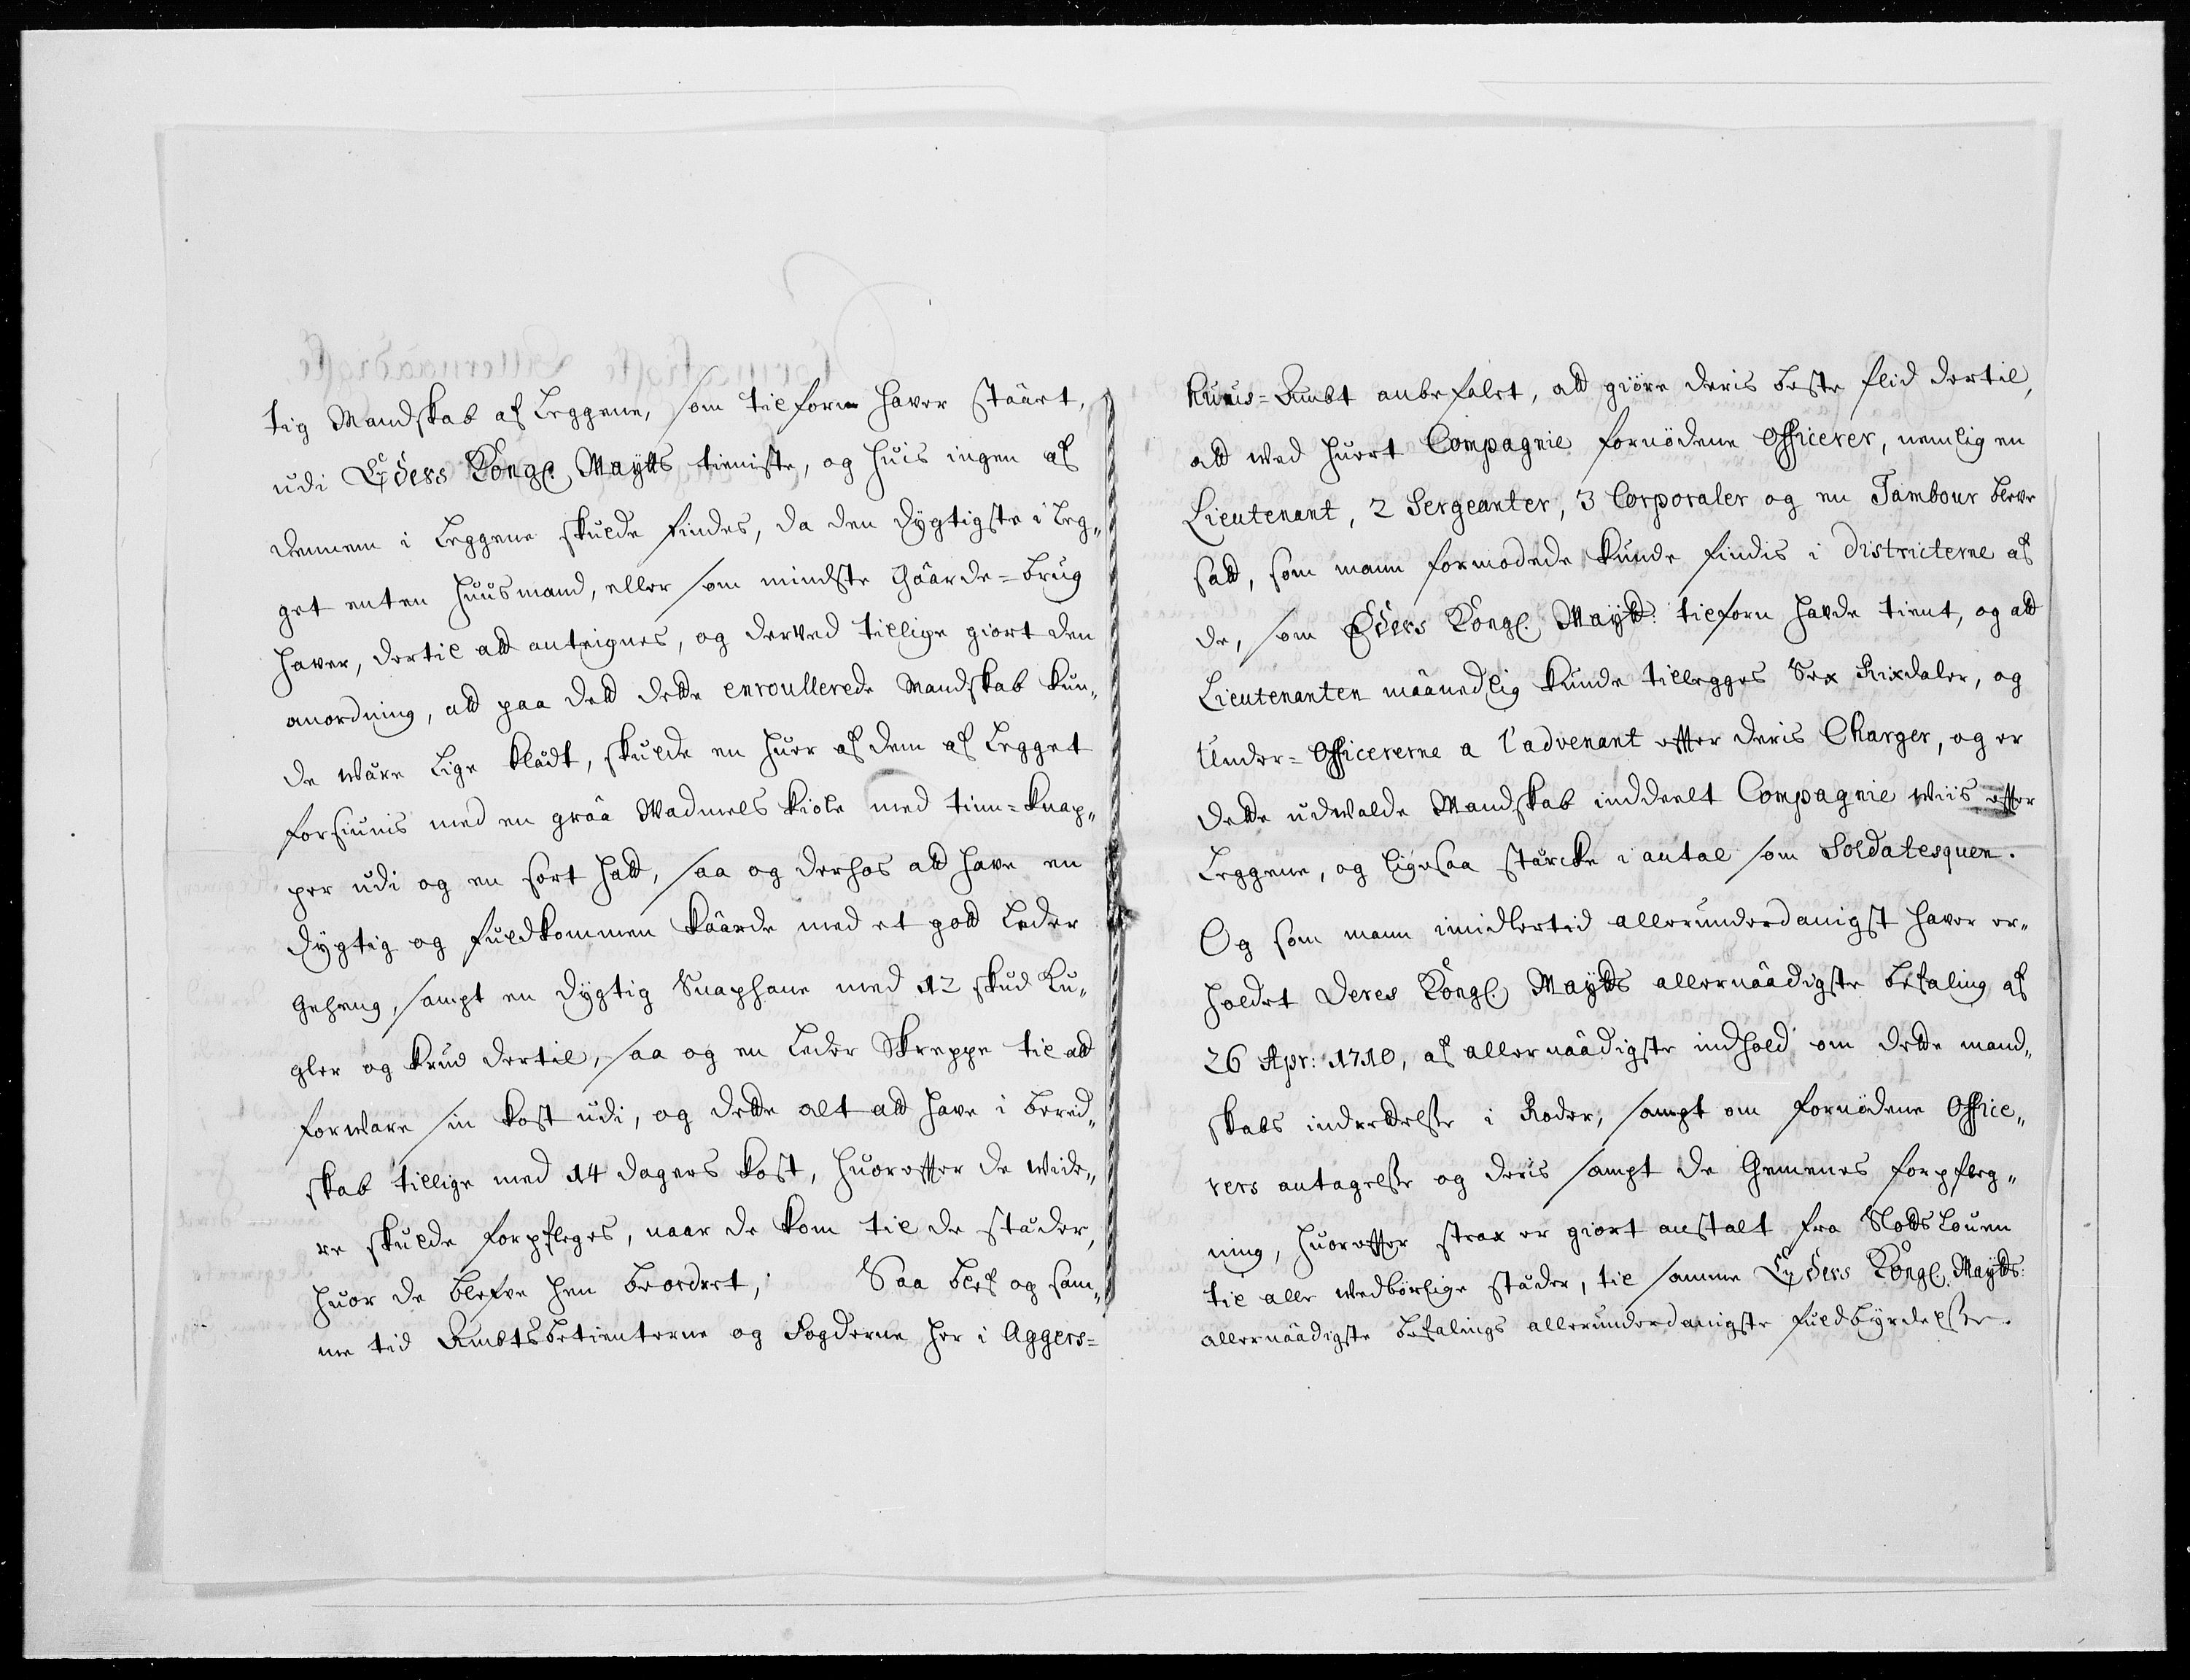 tig Mandskab af Leggene, som tilforn haver stäårt,
udi Eÿders Kongl. Maÿtts tieniste, og huis ingen af
dennem i Leggene skulde findes, da den dÿgtigste i Leg„
get enten huusmand, eller som mindste Gåarde=brug
haver, dertil att anteignes, og derved tillige giort den
anordning, att paa dett dette enroullerede Mandskab kun„
de wäre Lige klädt, skulde en huer af dem af Legget
forsiunis med en gråa Wadmels kiole med tinn=knap„
per udi og en sort hatt, saa og derhos att have en
dÿgtig og fuldkommen kåarde med et gott Leder
Geheng, sampt en dÿgtig Snaphane med 12 skud Ku„
gler og krud dertil, saa og en Leder Skreppe til att
forware sin kost udi, og dette alt att have i bered„
skab tillige med 14 dagers kost, huorefter de wide„
re skulde forpfleges, naar de kom til de städer,
huor de blefve hen beordert; Saa blef og sam„
me tid Ambtsbetienterne og Fogderne her i Aggers=
huus=Ambt anbefalet, att giöre deris beste flid dertil,
att wed huert Compagnie fornödene Officerer, nemlig en
Lieutenant, 2 Sergeanter, 3 Corporaler og en Tambour bleve
satt, som mann formodede kunde findis i Districterne af
de, som Eÿders Kongl. Maÿtt: tilforn havde tient, og att
Lieutenanten måanedlig kunde tillegges Sex Rixdaler, og
Under=Officererne a l'advenant efter deris Charger, og er
dette udwalde Mandskab inddeelt Compagnie wiis efter
Leggene, og ligesaa stärcke i antal som Soldatesquen.
Og som mann imidlertid allerunderdanigst haver er„
holdet Deres Kongl. Maÿtts allernåadigste befaling af
26 Apr: 1710, af allernåadigste indhold om dette mand„
skabs indrettelse i Roder, sampt om fornödene Office„
rers antagelse og deris sampt de Gemenes forpfleg„
ning, huorefter strax er giort anstalt fra SlottsLouen
til alle wedbörlige städer, til samme Eÿders Kongl. Maÿtts:
allernåadigste befalings allerunderdanigste fuldbÿrdelse.